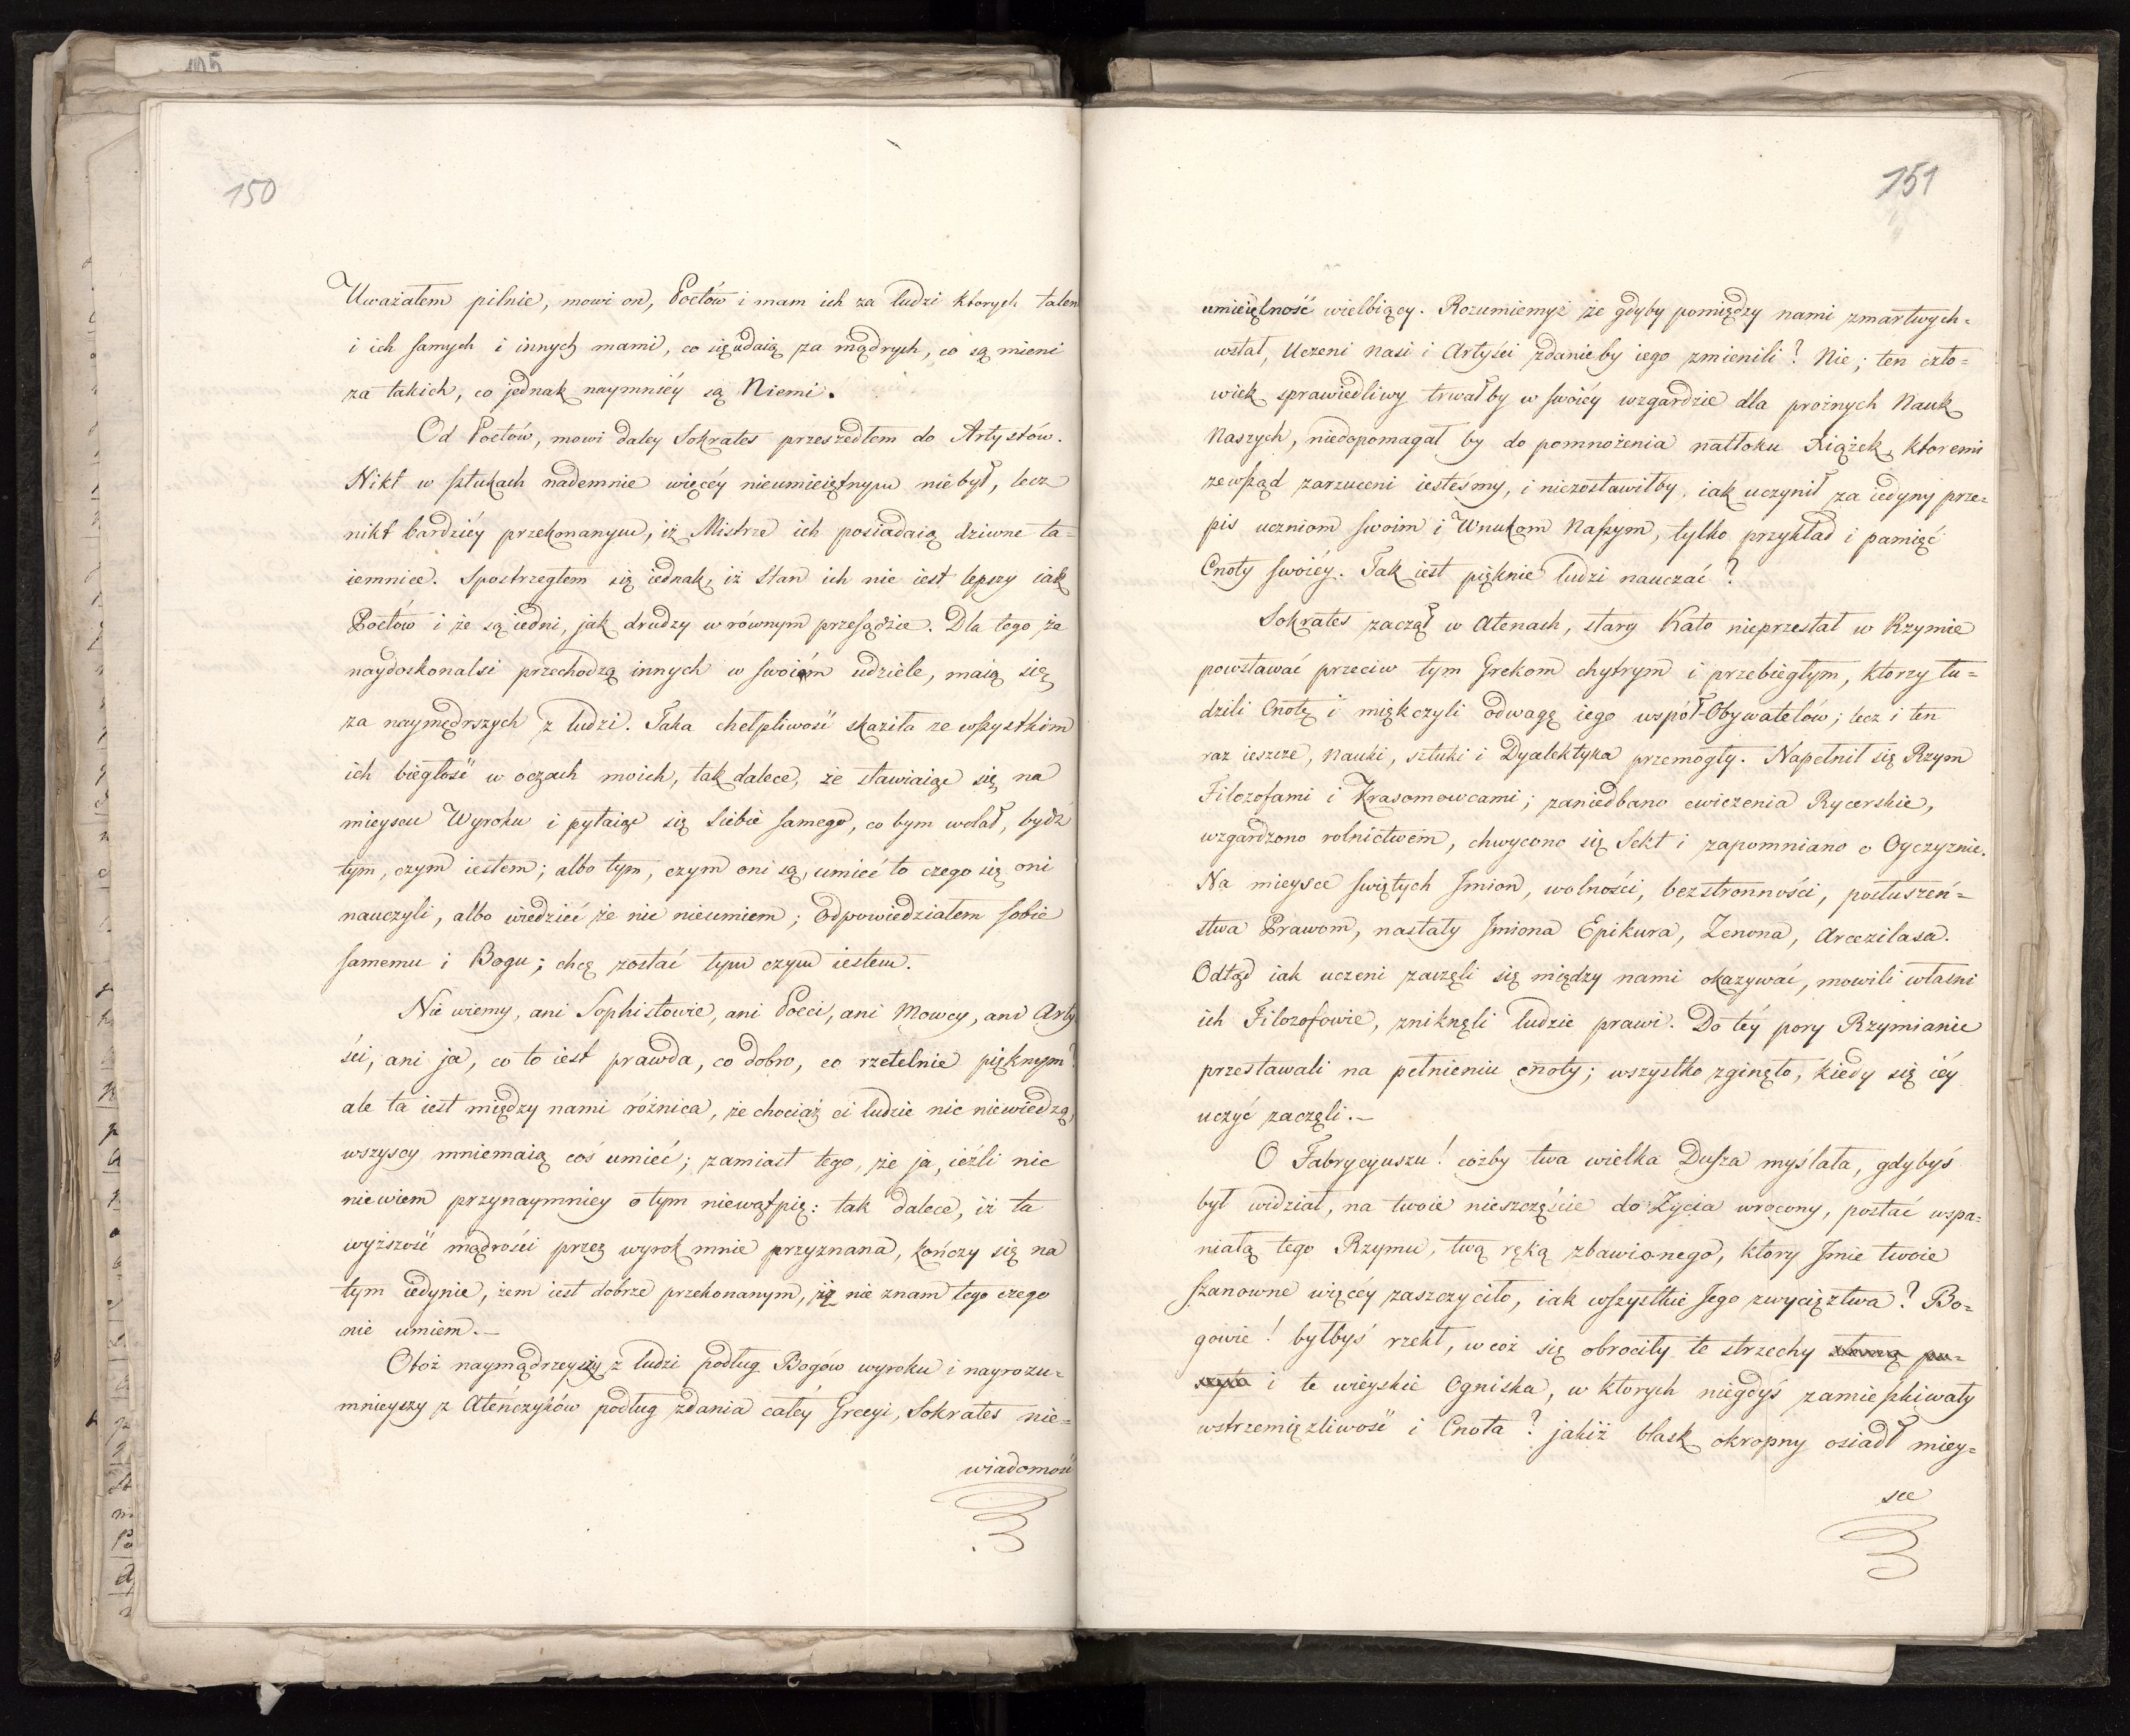 105
150
Uważałem pilnie, mowi on, Poetów i mam ich za ludzi których talen
i ich samych i innych mami, co się udaią za mądrych, co są mieni
za takich, co jednak naymniéy są Niemi.
Od Poetów, mowi daley Sokrates przeszedłem do Artystów.
Nikt w sztukach nademnie więcéy nieumieiętnym nie był, lecz
nikt bardziéy przekonanym, iż Mistrze ich posiadaią dziwne ta=
iemnice. Spostrzegłem się iednak, iż stan ich nie iest lepszy iak
Poetów i że są iedni, jak drudzy w równym przesądzie. Dla tego że
naydoskonalsi przechodzą innych w swoiém udziele, maią się
za naymędrszych z ludzi. Taka chełpliwość skaziła ze wszystkim
ich biegłość w oczach moich, tak dalece, że stawiaiąc się na
mieyscu Wyroku i pytaiąc się siebie samego, co bym wolał, bydź
tym, czym iestem; albo tym, czym oni są, umieć to czego się oni
nauczyli, albo wiedzieć że nic nieumiem; odpowiedziałem sobie
samemu i Bogu; chcę zostać tym czym iestem.
Nie wiemy, ani Sophistowie, ani Poeci, ani Mowcy, ani Arty
ści, ani ja, co to iest prawda, co dobro, co rzetelnie pięknym?
ale ta iest między nami różnica, że chociaż ci ludzie nic niewiedzą,
wszyscy mniemaią coś umieć; zamiast tego, że ja, ieźli nic
niewiem przynaymniey o tym niewątpię: tak dalece, iż ta
wyższość mądrości przez wyrok mnie przyznana, kończy się na
tym iedynie, żem iest dobrze przekonanym, iż nie znam tego czego
nie umiem.—
Otoż naymądrzeyszy z ludzi podług Bogów wyroku i nayrozu=
mnieyszy z Ateńczyków podług zdania całéy Grecyi, Sokrates nie=
wiadomość
151
umieiętność wielbiący. Rozumiemyż że gdyby pomiędzy nami zmartwych=
wstał, Uczeni nasi i Artyści zdanieby iego zmienili? Nie; ten czło=
wiek sprawiedliwy trwałby w swoiéy wzgardzie dla prożnych Nauk
Naszych, niedopomagał by do pomnożenia natłoku Xiążek, ktoremi
zewsząd zarzuceni iesteśmy, i niezostawiłby, iak uczynił za iedyny prze=
pis uczniom swoim i Wnukom Naszym, tylko przykład i pamięć
Cnoty swoiéy. Tak iest pięknie ludzi nauczać?
Sokrates zaczął w Atenach, stary Kato nieprzestał w Rzymie
powstawać przeciw tym Grekom chytrym i przebiegłym, ktorzy łu=
dzili Cnotę i miękczyli odwagę iego współ-Obywatelów; lecz i ten
raz ieszcze, Nauki, sztuki i Dyalektyka przemogły. Napełnił się Rzym
Filozofami i Krasomowcami; zaniedbano cwiczenia Rycerskie,
wzgardzono rolnictwem, chwycono się Sekt i zapomniano o Oyczyznie.
Na mieysce świętych Jmion, wolności, bezstronności, posłuszeń=
stwa Prawom, nastały Jmiona Epikura, Zenona, Arcezilasa.
Odtąd iak uczeni zaczęli się między nami okazywać, mowili własni
ich Filozofowie, zniknęli ludzie prawi. Do téy pory Rzymianie
przestawali na pełnieniu cnoty; wszystko zginęło, kiedy się iéy
uczyć zaczęli.—
O Fabrycyuszu! cożby twa wielka Dusza myślała, gdybyś
był widział, na twoie nieszczęście do Życia wrocony, postać wspa=
niałą tego Rzymu, twą ręką zbawionego, ktory Jmie twoie
szanowne więcéy zaszczyciło, iak wszystkie Jego zwycięztwa? Bo=
gowie! byłbyś rzekł, w coż się obrociły te strzechy
i te wieyskie Ogniska, w ktorych niegdyś zamieszkiwały
wstrzemięzliwość i Cnota? jakiż blask okropny osiadł miey=
sce